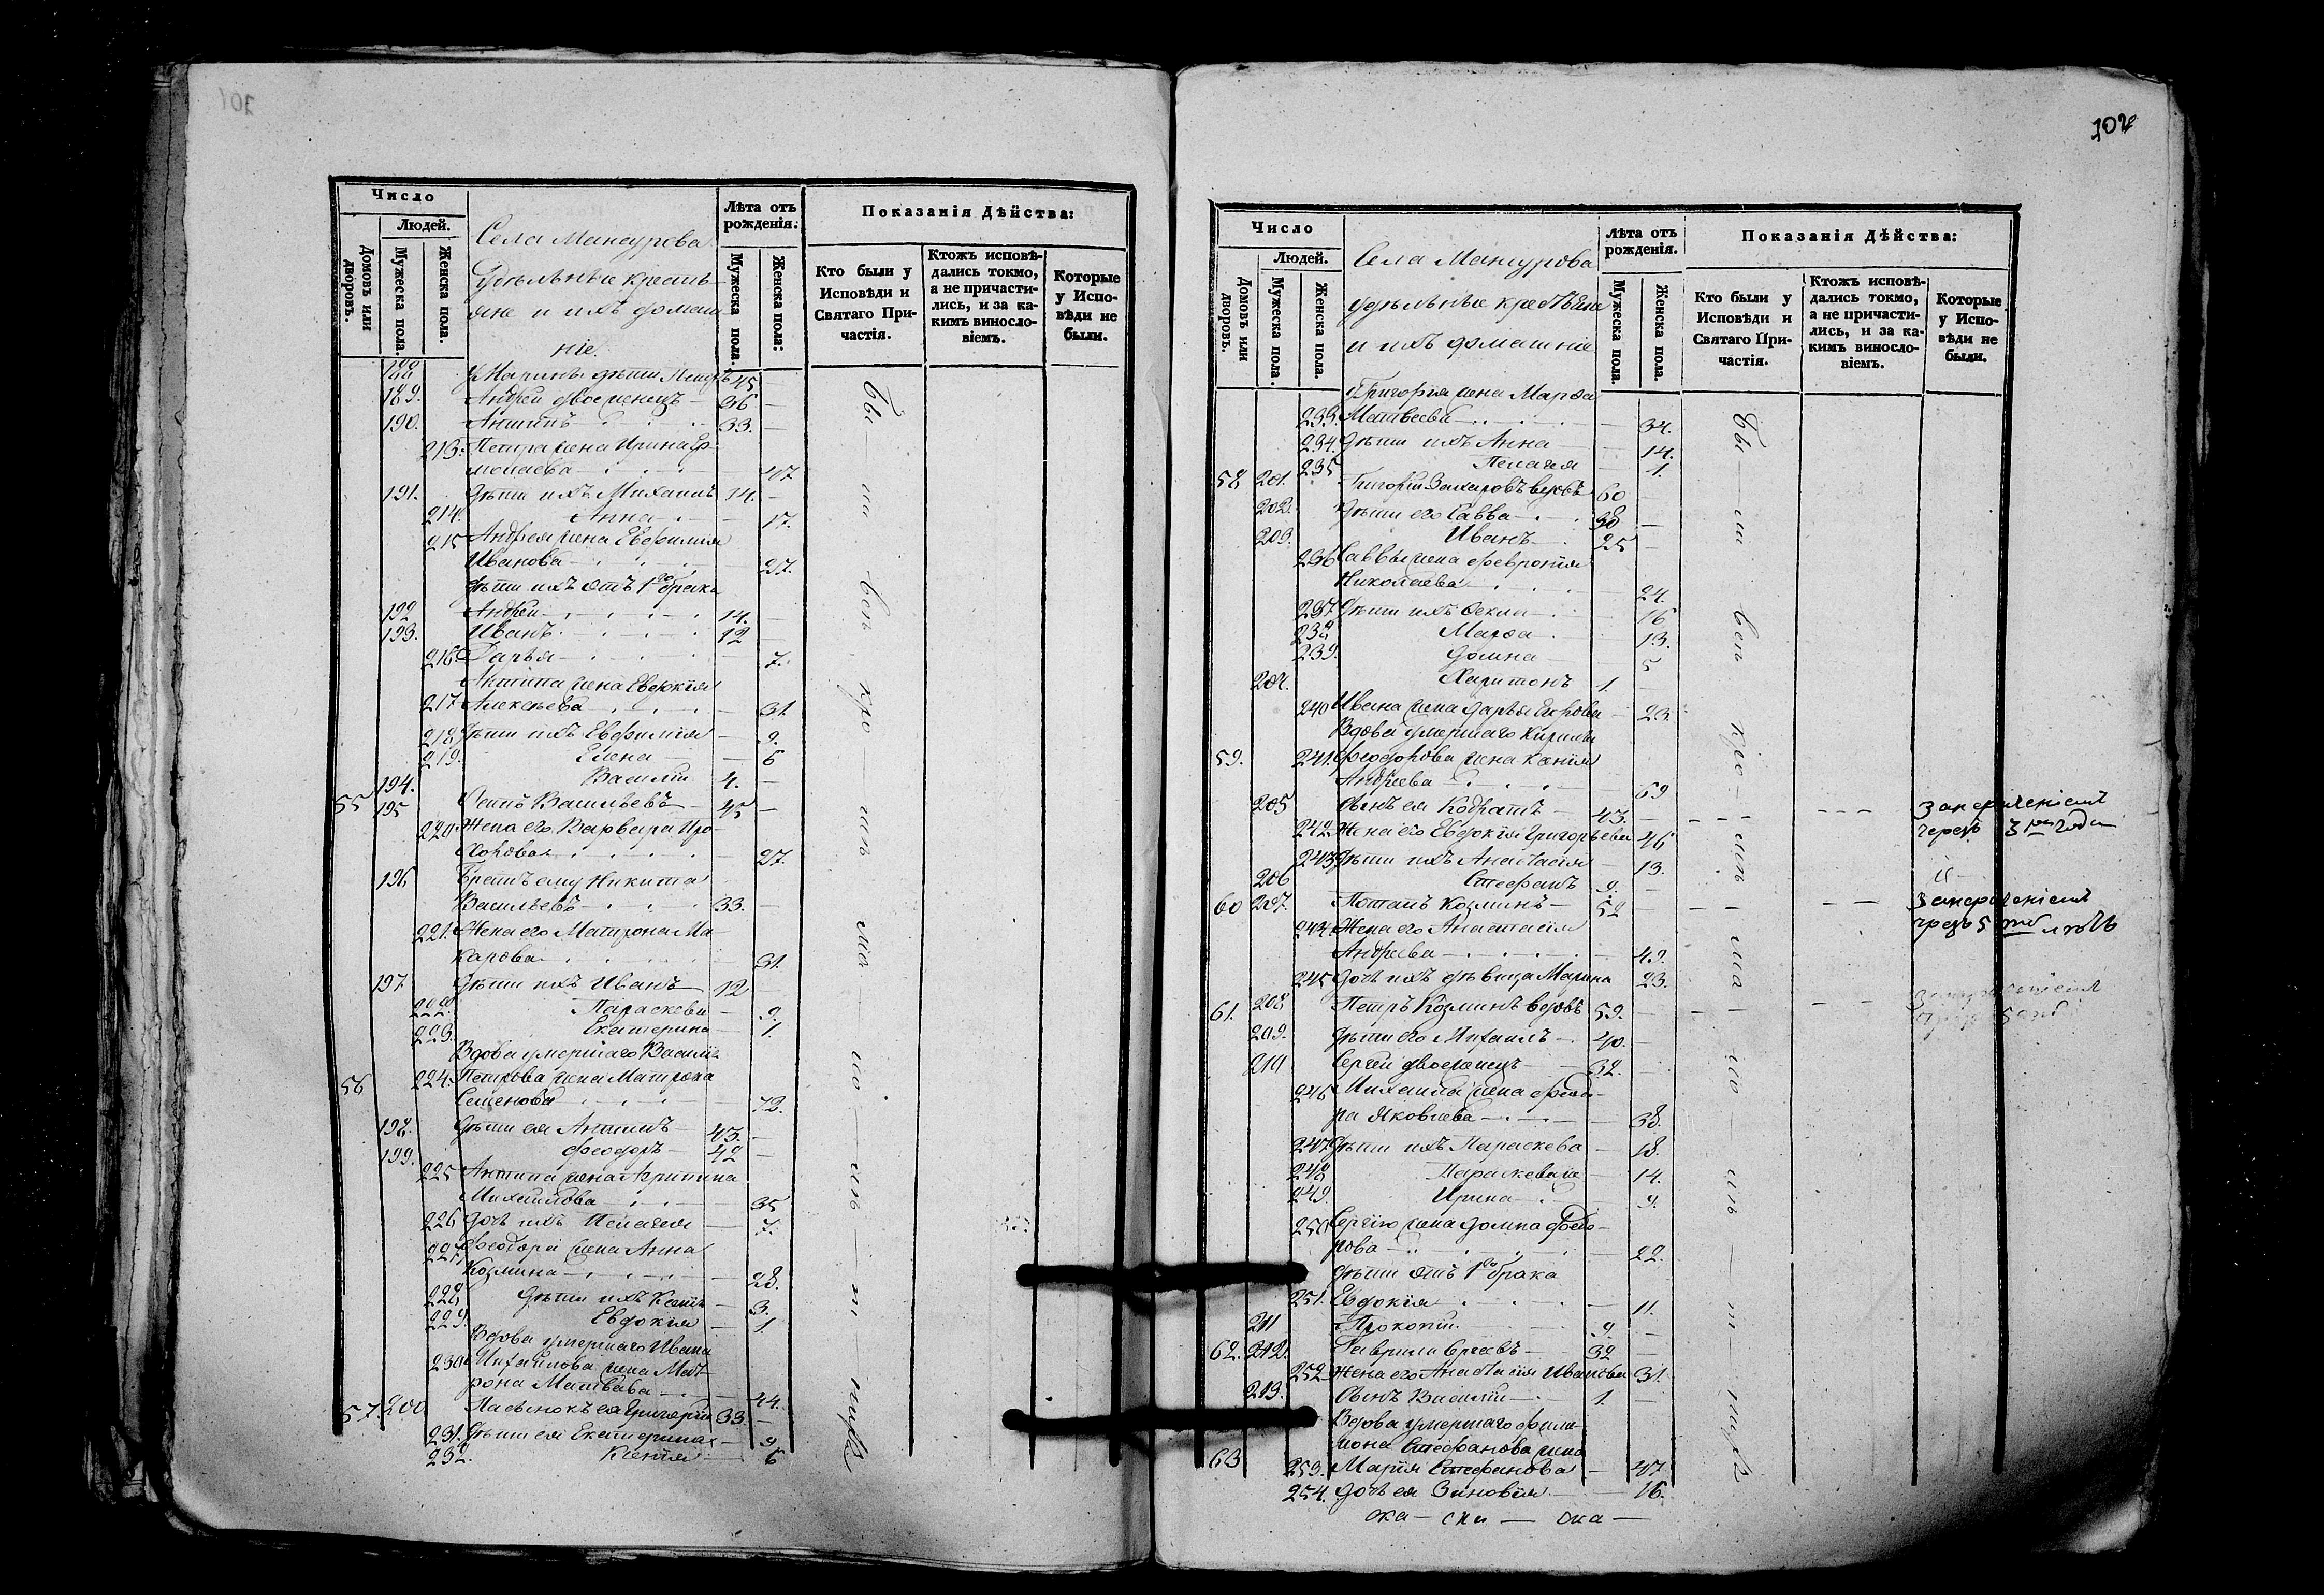 101
Число
Людей.
Домовъ или дворовъ.
Мужеска пола.
Женска пола.
Села Мансурова
Удѣльные кресть-
яне и ихъ домаш-
ніе.
Лѣта отъ рожденія.
Мужеска пола.
Женска пола:
Показанія Дѣйства:
Кто были у Исповѣди и Святаго Причастія.
Ктожъ исповѣдались токмо, а не причастились, и за какимъ винословіемъ.
Которые у Исповѣди не были.
188 Марины дѣти Петръ 45
189. Андрей двоеженецъ 36
190. Антипъ 33.
213. Петра жена Ирина Ер-
молаева 47
191. Дѣти ихъ Михаилъ 14.
214. Анна 17.
215 Андрея жена Евфимія
Иванова 27.
Дѣти ихъ отъ 1го брака
192 Андрей 14.
193. Иванъ 12
216. Дарья 7.
Антипа жена Евдокія
217 Алексѣева 31.
218. Дѣти ихъ Евфимія 9.
219. Елена 6
194. Василій 4.
55 195 Осипъ Васильевъ 45
220. Жена его Варвара Про-
хорова 27.
196 Братъ ему Никита
Васильевъ 33.
221. Жена его Матрона Ма-
карова 31.
197 Дѣти ихъ Иванъ 12
222. Параскева 9.
223. Екатерина 1.
Вдова умершаго Василія
56 224. Петрова жена Матрона
Семенова 72.
198. Дѣти ея Антипъ 43.
199. Феодоръ 42
225 Антипа жена Агрипина
Михайлова 35
226 Дочь ихъ Пелагея 7.
227. Феодора жена Анна
Козмина 28.
228 Дѣти ихъ 3.
229. Евдокія 1.
Вдова умершаго Ивана
230. Михайлова жена Мат-
рона Матвѣева 44.
57. 200 Пасынокъ ея Григорій 33.
231. Дѣти ея Екатерина 9
232. Ксенія 6
102
Число
Людей.
Домовъ или дворовъ.
Мужеска пола.
Женска пола.
Села Мансурова
удѣльные крестьяне
и ихъ домашніе
Лѣта отъ рожденія.
Мужеска пола.
Женска пола.
Показанія Дѣйства:
Кто были у Исповѣди и Святаго Причастія.
Ктожъ исповѣдались токмо, а не причастились, и за какимъ винословіемъ.
Которые у Исповѣди не были.
Григорія жена Марѳа
233. Матвѣева 34.
234. Дѣти ихъ Анна 14.
235 Пелагея 1.
58 201. Григорій Захаровъ вдовъ 60
202. Дѣти его Савва 38
203. Иванъ 25
236 Саввы жена Февронія
Николаева 24.
237 Дѣти ихъ Ѳекла 16
238 Марѳа 13.
239. Домна 5
204. Харитонъ 1.
240 Ивана жена Дарья 23.
Вдова умершаго Кирилы
59. 241. Феодорова жена Ксенія
Андреева 69
205 Сынъ ея Кодратъ 43.
242. Жена его Евдокія Григорьева 46
243. Дѣти ихъ Анастасія 13.
206 Стефанъ 9.
60 207. Потапъ Козминъ 52
244. Жена его Анастасія
Андреева 49.
245 Дочь ихъ дѣвица Марина 23.
61. 208 Петръ Козминъ вдовъ 59.
209. Дѣти его Михаилъ 40.
210 Сергей двоеженецъ 32.
246 Михаила жена Феодо-
ра Яковлева 38.
247 Дѣти ихъ Параскева 18.
248 Параскева 14.
249. Ирина 9.
250 Сергія жена Домна Федо-
рова 22.
Дѣти отъ 1го брака
251. Евдокія 11.
211 Прокопій 9.
62. 212. Гаврила 32
252 Жена его Анастасія Иванова 31.
213. Сынъ Василій 1.
Вдова умершаго Фили-
мона Стефанова жена
63 253. Марія Стефанова 47
254. Дочь ея Зиновія 16.